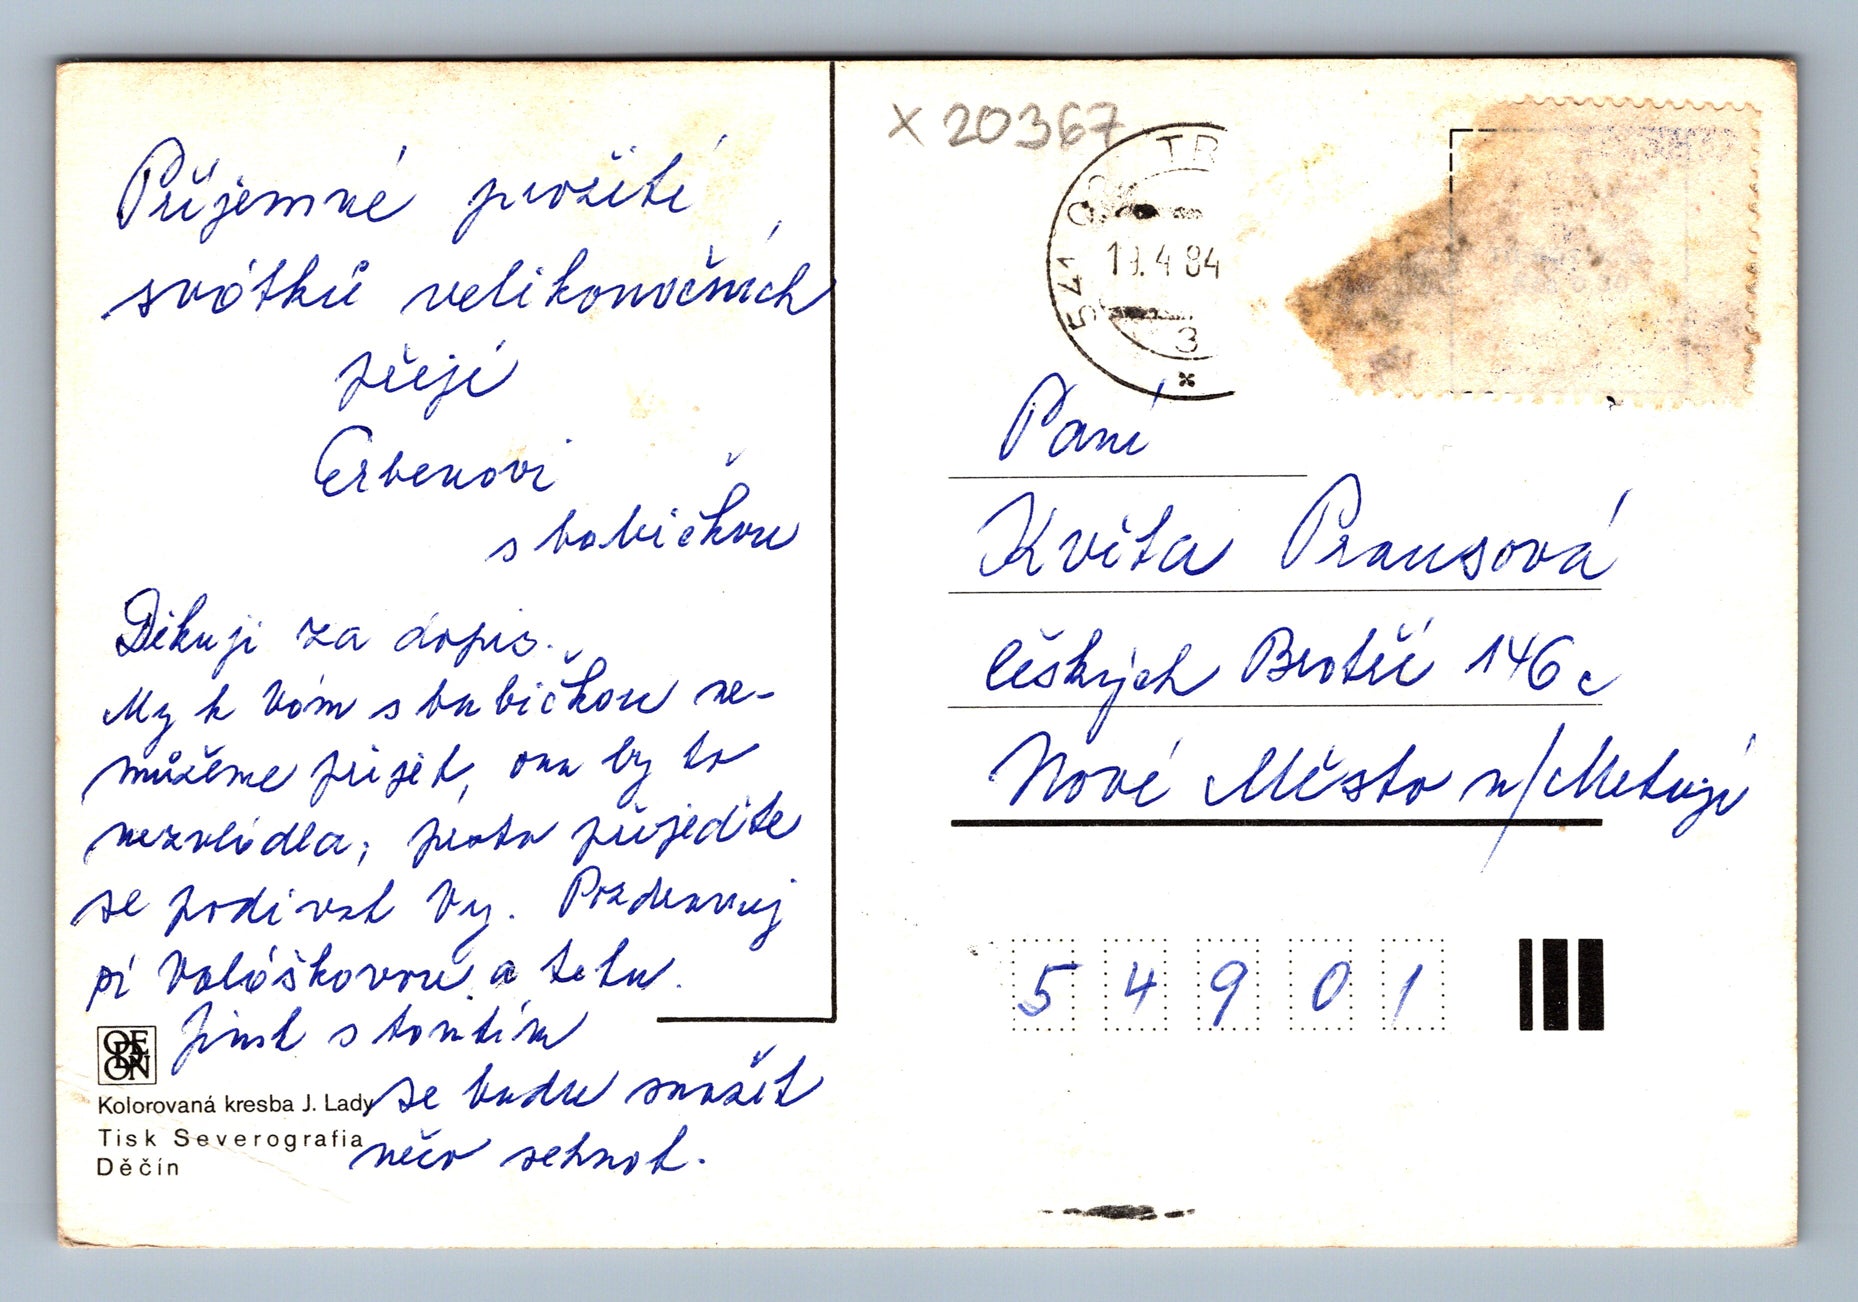 Příjemné prožití
svátků velikonočních
přejí
Erbenovi
s babičkou
Děkuji za dopis.
My k Vám s babičkou ne-
můžeme přijet, ona by to
nezvládla, proto přijeďte
se podívat Vy. Pozdravuj
pí Valáškovou a tetu.
Jinak s
se budu snažit
něco sehnat.
ODEON
Kolorovaná kresba J. Lady
Tisk Severografia
Děčín
X 20367
541 0 TR
19.4 84
3
Paní
Květa Prausová
Českých Bratří 146 c
Nové Město n/Metují
54901